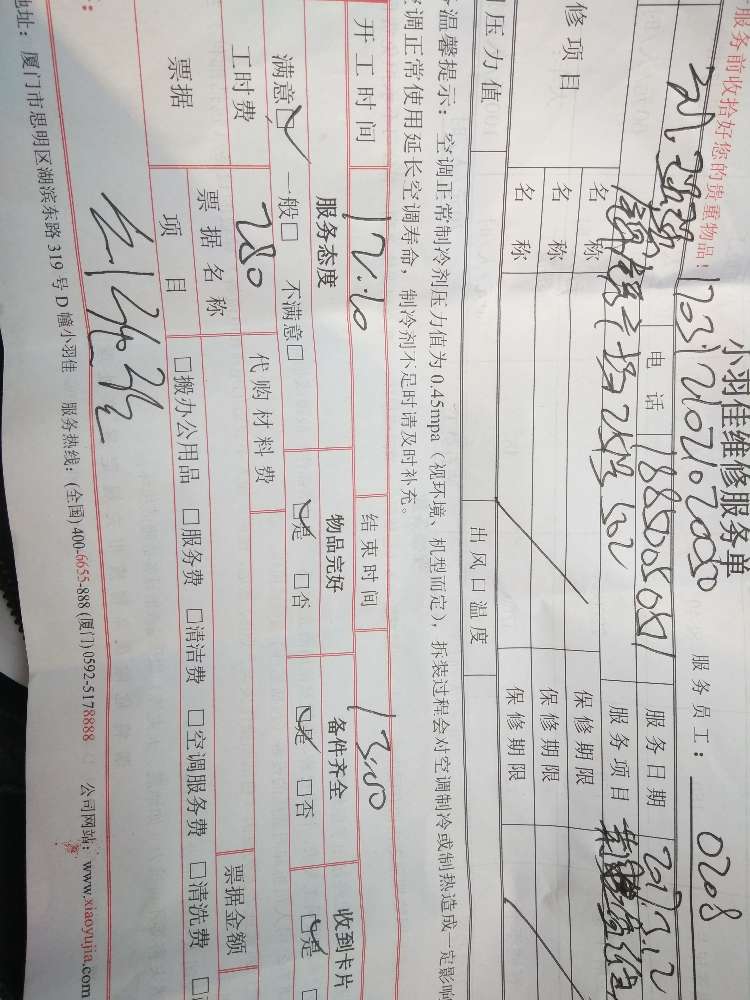 服务前收拾好您的贵重物品！
小羽佳维修服务单
服务员工： 0208
电话
服务日期
服务项目
修项目
名称
保修期限
名称
保修期限
名称
保修期限
压力值
出风口温度
温馨提示：空调正常制冷剂压力值为0.45mpa（视环境、机型而定），拆装过程会对空调制冷或制热造成一定影响
调正常使用延长空调寿命，制冷剂不足时请及时补充。
开工时间 12:10 结束时间 13:00
服务态度 物品完好 备件齐全 收到卡片
满意☑ 一般□ 不满意□ ☑是 □否 ☑是 □否 ☑是
工时费 280 代购材料费
票据 票据名称 票据金额
项目 □搬办公用品 □服务费 □清洁费 □空调服务费 □清洗费
地址：厦门市思明区湖滨东路319号D幢小羽佳 服务热线：(全国)400-6655-888 (厦门)0592-5178888 公司网站：www.xiaoyujia.com